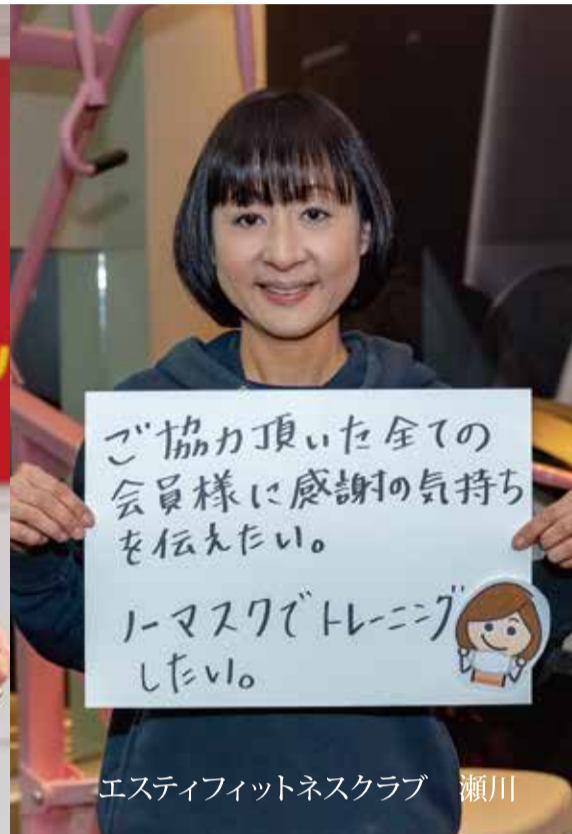 ご協力頂いた全ての
会員様に感謝の気持ち
を伝えたい。
ノーマスクでトレーニング
したい。
エスティフィットネスクラブ　瀬川